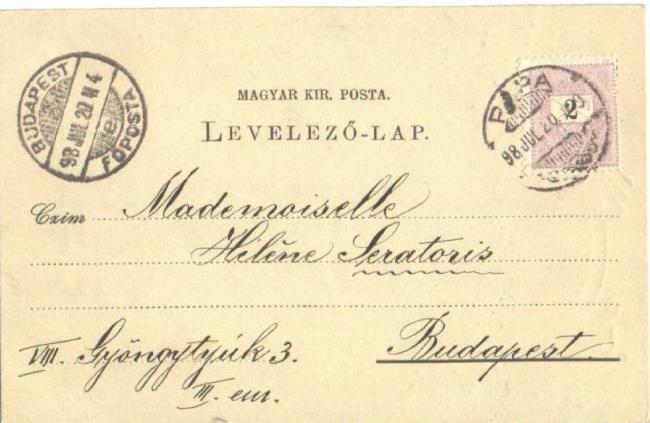 BUDAPEST
98 JUL. 20 N 4
FŐPOSTA
PÁPA
98 JUL. 20.
2
MAGYAR KIR. POSTA.
LEVELEZŐ-LAP.
Czim Mademoiselle
Hélène Seratoris
VIII. Gyöngytyúk 3. Budapest.
III. em.